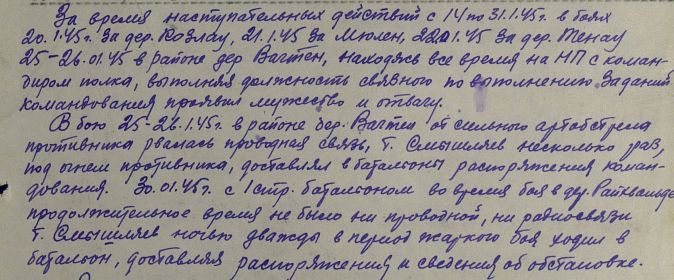 За время наступательных действий с 14 по 31.1.45г. в боях
20.1.45г. за дер. Козлау, 21.1.45 за Мюлен, 22.01.45 за дер. Тенау
25-26.01.45 в районе дер Вагтен, находясь все время на НП с коман-
диром полка, выполняя должность связного по выполнению заданий
командования проявил мужество и отвагу.
В бою 25-26.1.45г. в районе дер. Вагтен от сильного артобстрела
противника рвалась проводная связь, т. Смышляев несколько раз,
под огнем противника, доставлял в батальоны распоряжения коман-
дования. 30.01.45г. с 1 стр. батальоном во время боя в дер. Райхвальде
продолжительное время не было ни проводной, ни радиосвязи
т. Смышляев ночью дважды в период жаркого боя ходил в
батальон, доставляя распоряжения и сведения об обстановке.